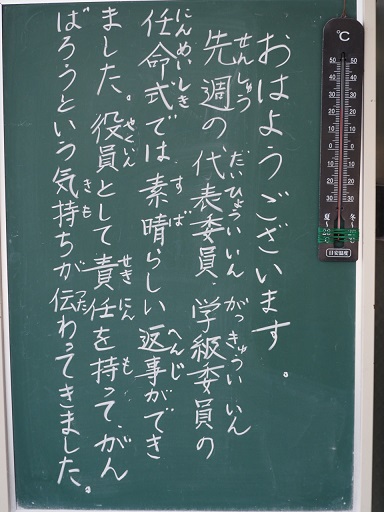 おはようございます。
先週の代表委員・学級委員の
せんしゅう だいひょういいん がっきゅういいん
任命式では素晴らしい返事ができ
にんめいしき すば へんじ
ました。役員として責任を持って、がん
やくいん せきにん も
ばろうという気持ちが伝わってきました。
きも つた
℃
50 50
40 40
30 30
20 20
10 10
0 0
10 10
20 20
30 30
夏 冬
目安温度